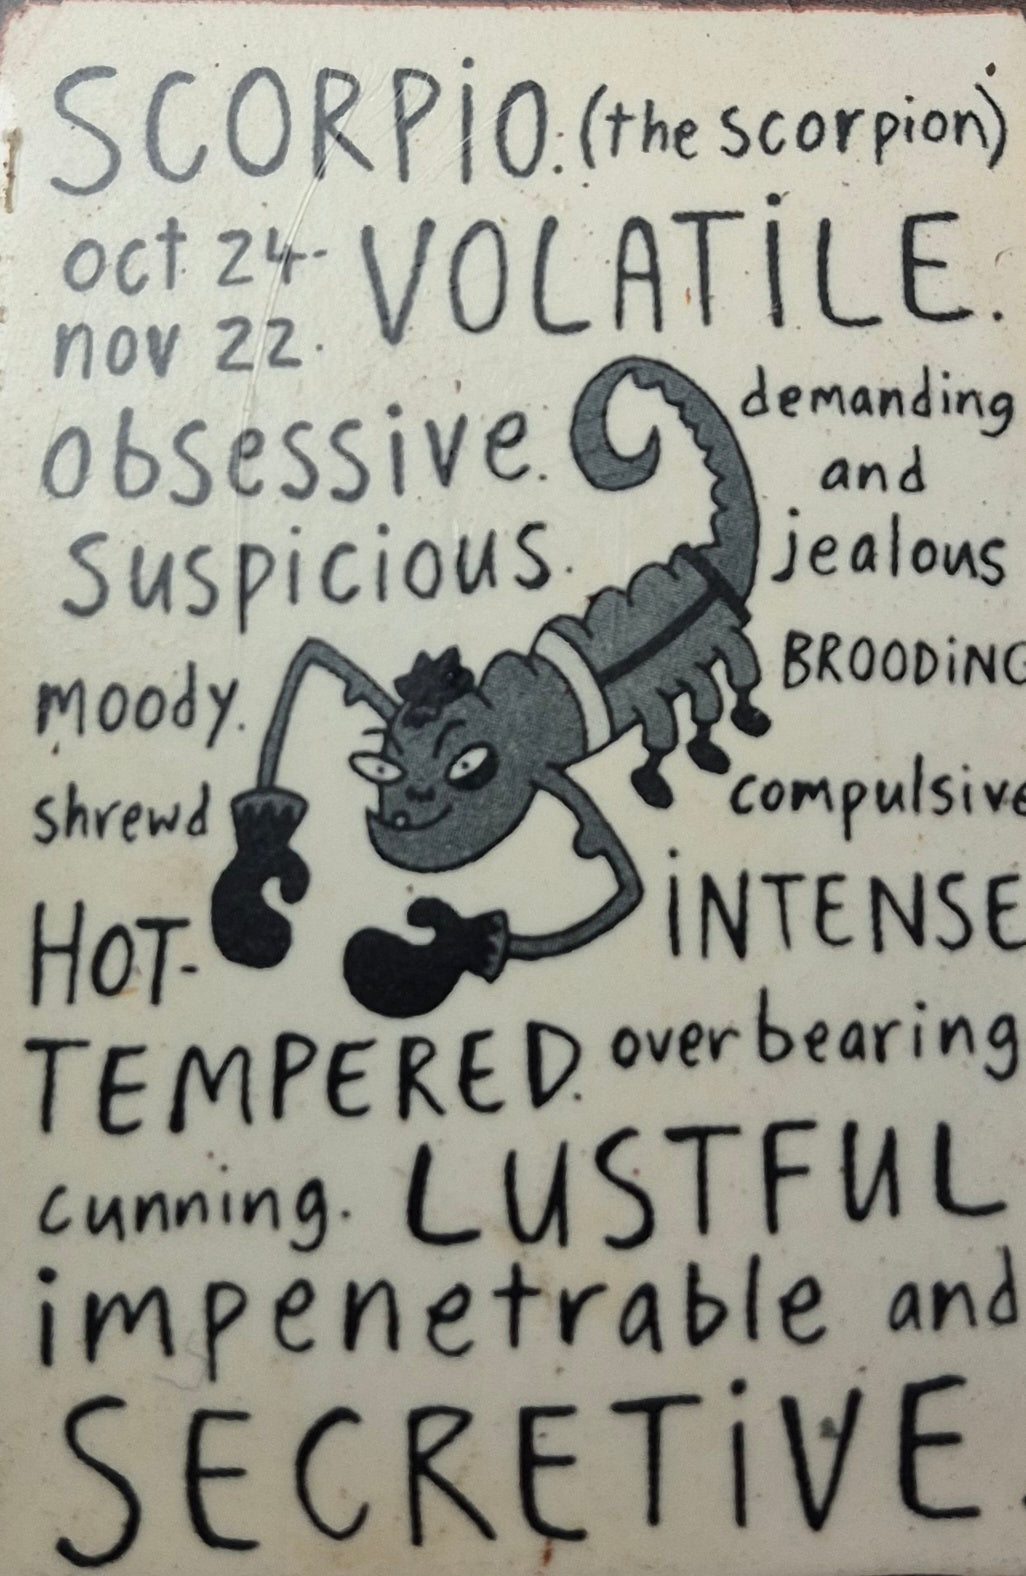 SCORPiO. (the scorpion)
oct 24-
nov 22.
VOLATiLE.
obsessive.
demanding
and
jealous
suspicious.
BROODiNG
moody.
compulsive
shrewd
iNTENSE
HOT-
TEMPERED.
overbearing
cunning. LUSTFUL
impenetrable and
SECRETiVE.